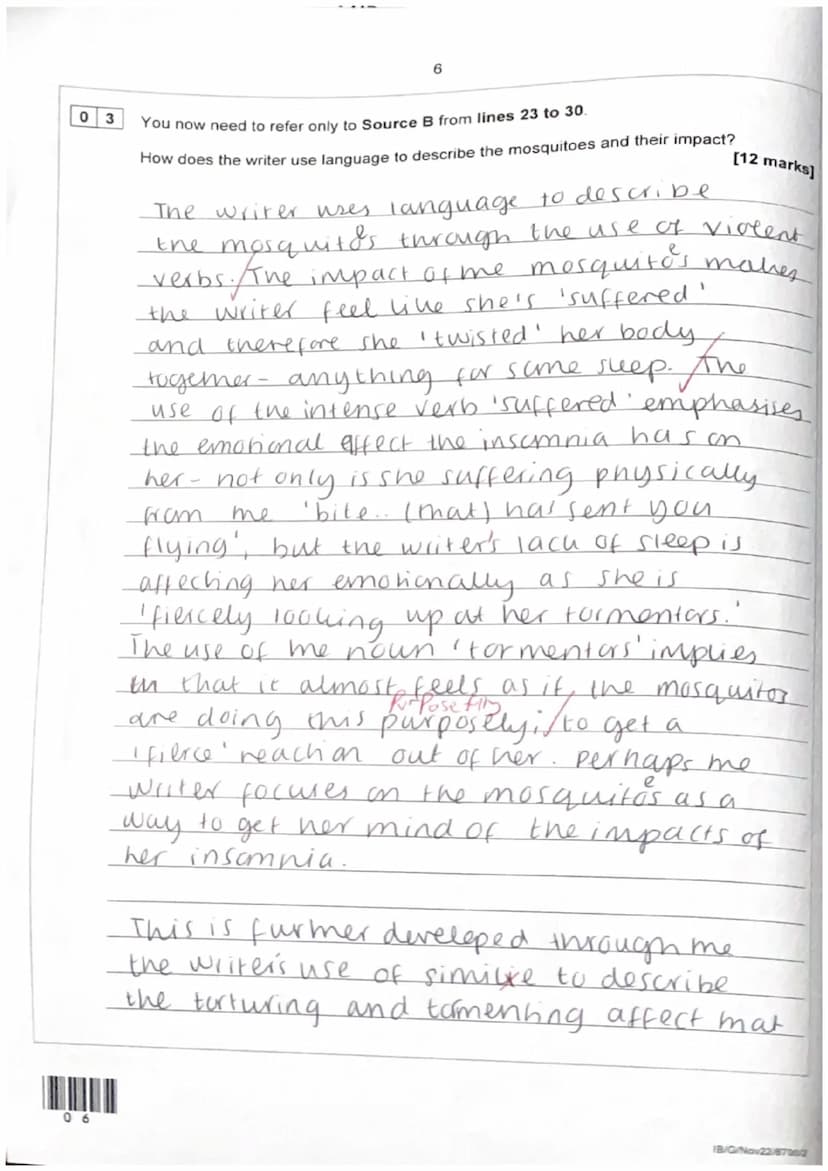 6
0 3 You now need to refer only to Source B from lines 23 to 30.
How does the writer use language to describe the mosquitoes and their impact?
[12 marks]
The writer uses language to describe
the mosquitoes through the use of violent
verbs. The impact of the mosquitoes makes
the writer feel like she's 'suffered'
and therefore she 'twisted' her body
together - anything for some sleep. The
use of the intense verb 'suffered' emphasises
the emotional affect the insomnia has on
her - not only is she suffering physically
from the 'bite.. (that) has sent you
flying', but the writer's lack of sleep is
affecting her emotionally as she is
'fiercely looking up at her tormentors.'
The use of the noun 'tormentors' implies
that it almost feels as if, the mosquitos
purposefully
are doing this purposely; to get a
'fierce' reaction out of her. perhaps the
writer focuses on the mosquitoes as a
way to get her mind of the impacts of
her insomnia.
This is further developed through the
the writer's use of simile to describe
the torturing and tormenting affect that
0 6
IB/G/Nov22/8700/2